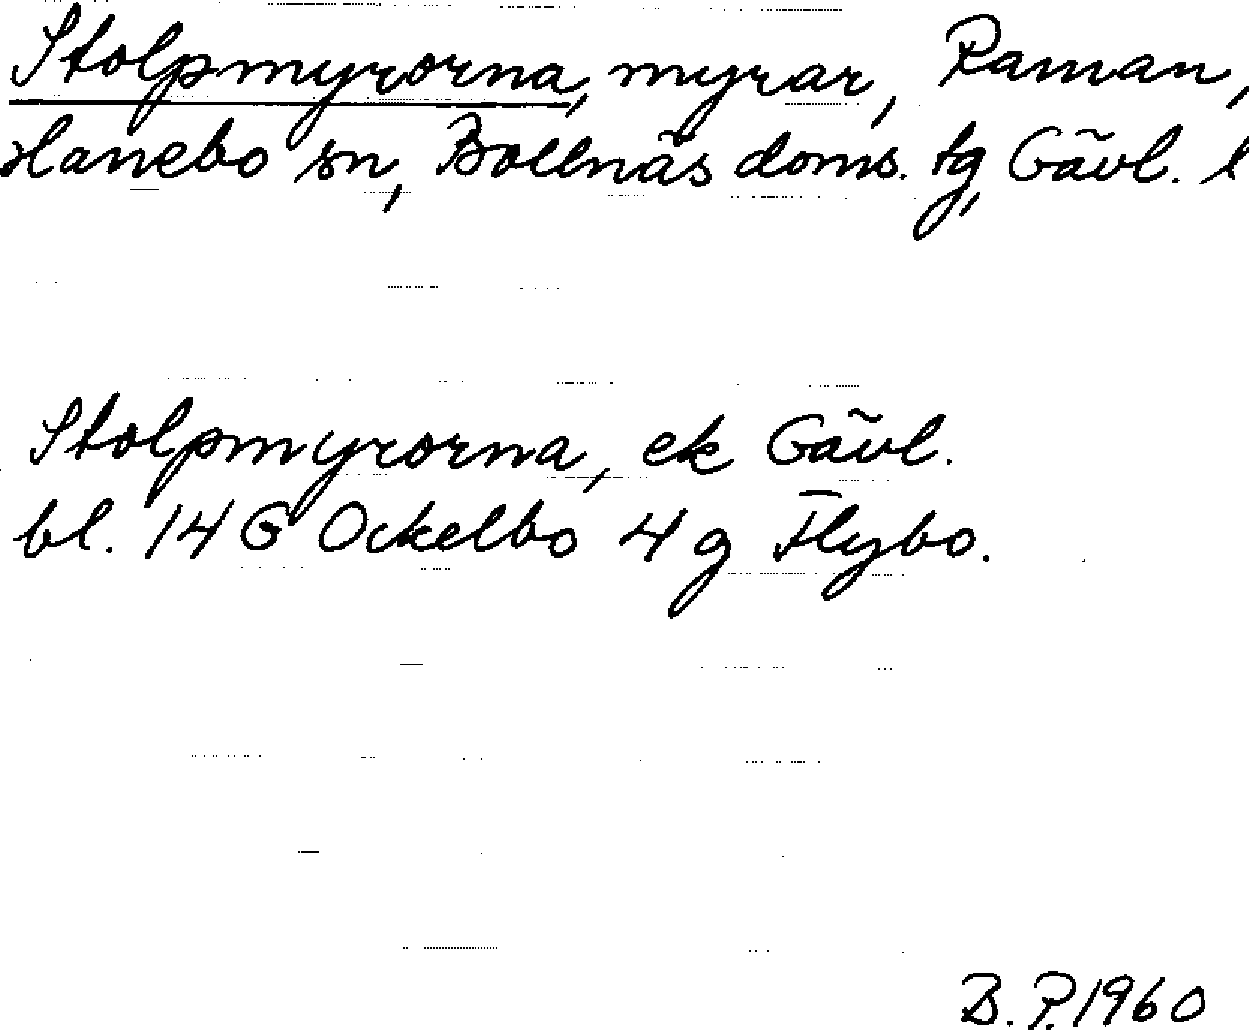 Stolpmyrorna, myrar, Raman,
Hanebo sn, Bollnäs doms. tg, Gävl. l
Stolpmyrorna, ek Gävl.
bl. 14 G Ockelbo 4 g Flybo.
B. P. 1960